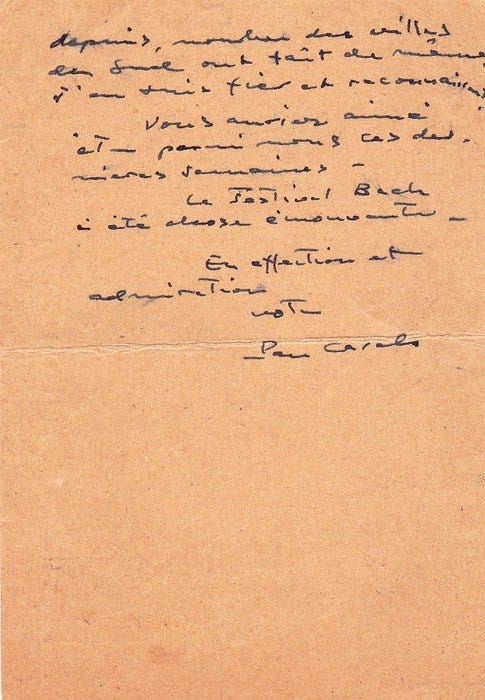 depuis, nombre des villes
du Sud ont fait de même
j'en suis fier et reconnaissant
Vous auriez aimé
être parmi nous ces der-
nières semaines -
Le Festival Bach
a été chose émouvante -
En affection et
admiration
votre
Pau Casals